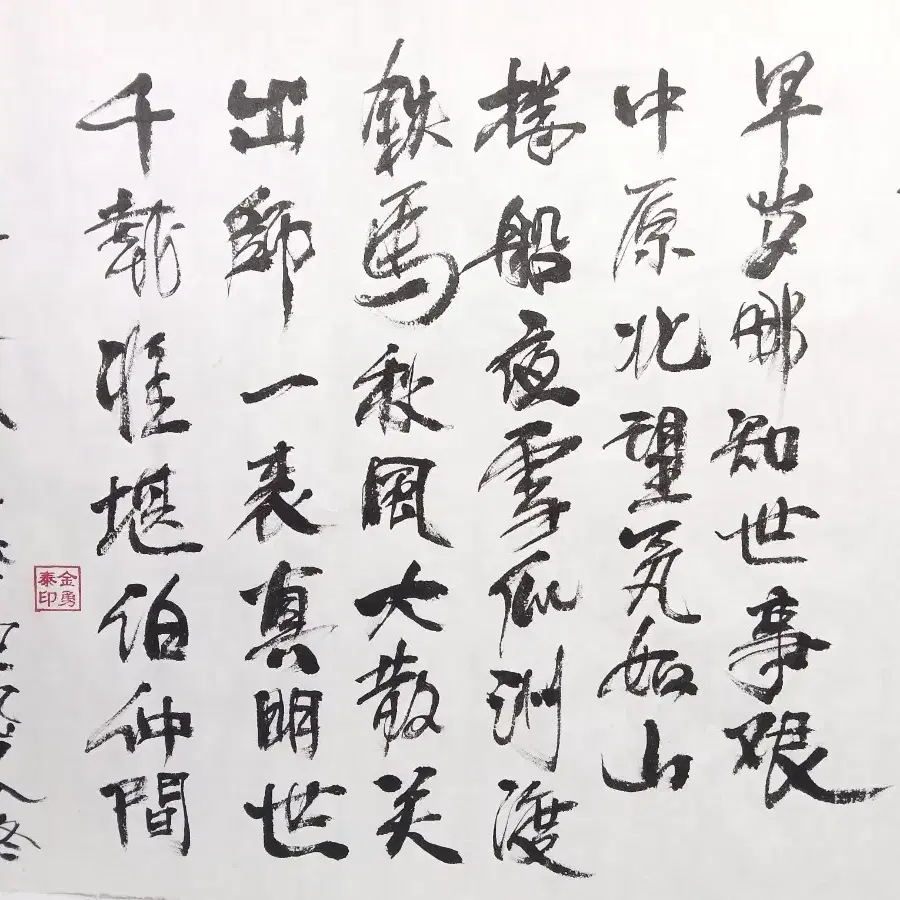 早岁那知世事艰
中原北望气如山
楼船夜雪瓜洲渡
鉄馬秋風大散关
出師一表真明世
千載谁堪伯仲間
金勇泰印